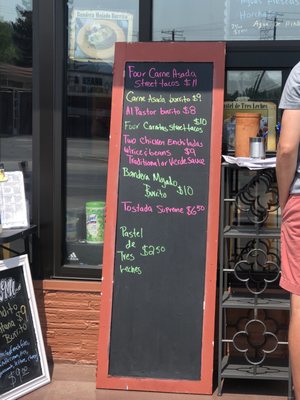 Bandera Mojado
Burrito
Aguas Frescas
Horchata
Four Carne Asada
Street tacos $11
Carne Asada burrito $9
Al Pastor burrito $8
Four Carnitas Street tacos $10
Two Chicken Enchiladas
w/rice & beans $9
Traditional or Verde Sauce
Bandera Mojado
Burrito $10
Tostada Supreme $6.50
Pastel
de
Tres
Leches
$2.50
Tres Leches
$9
Burrito
$9